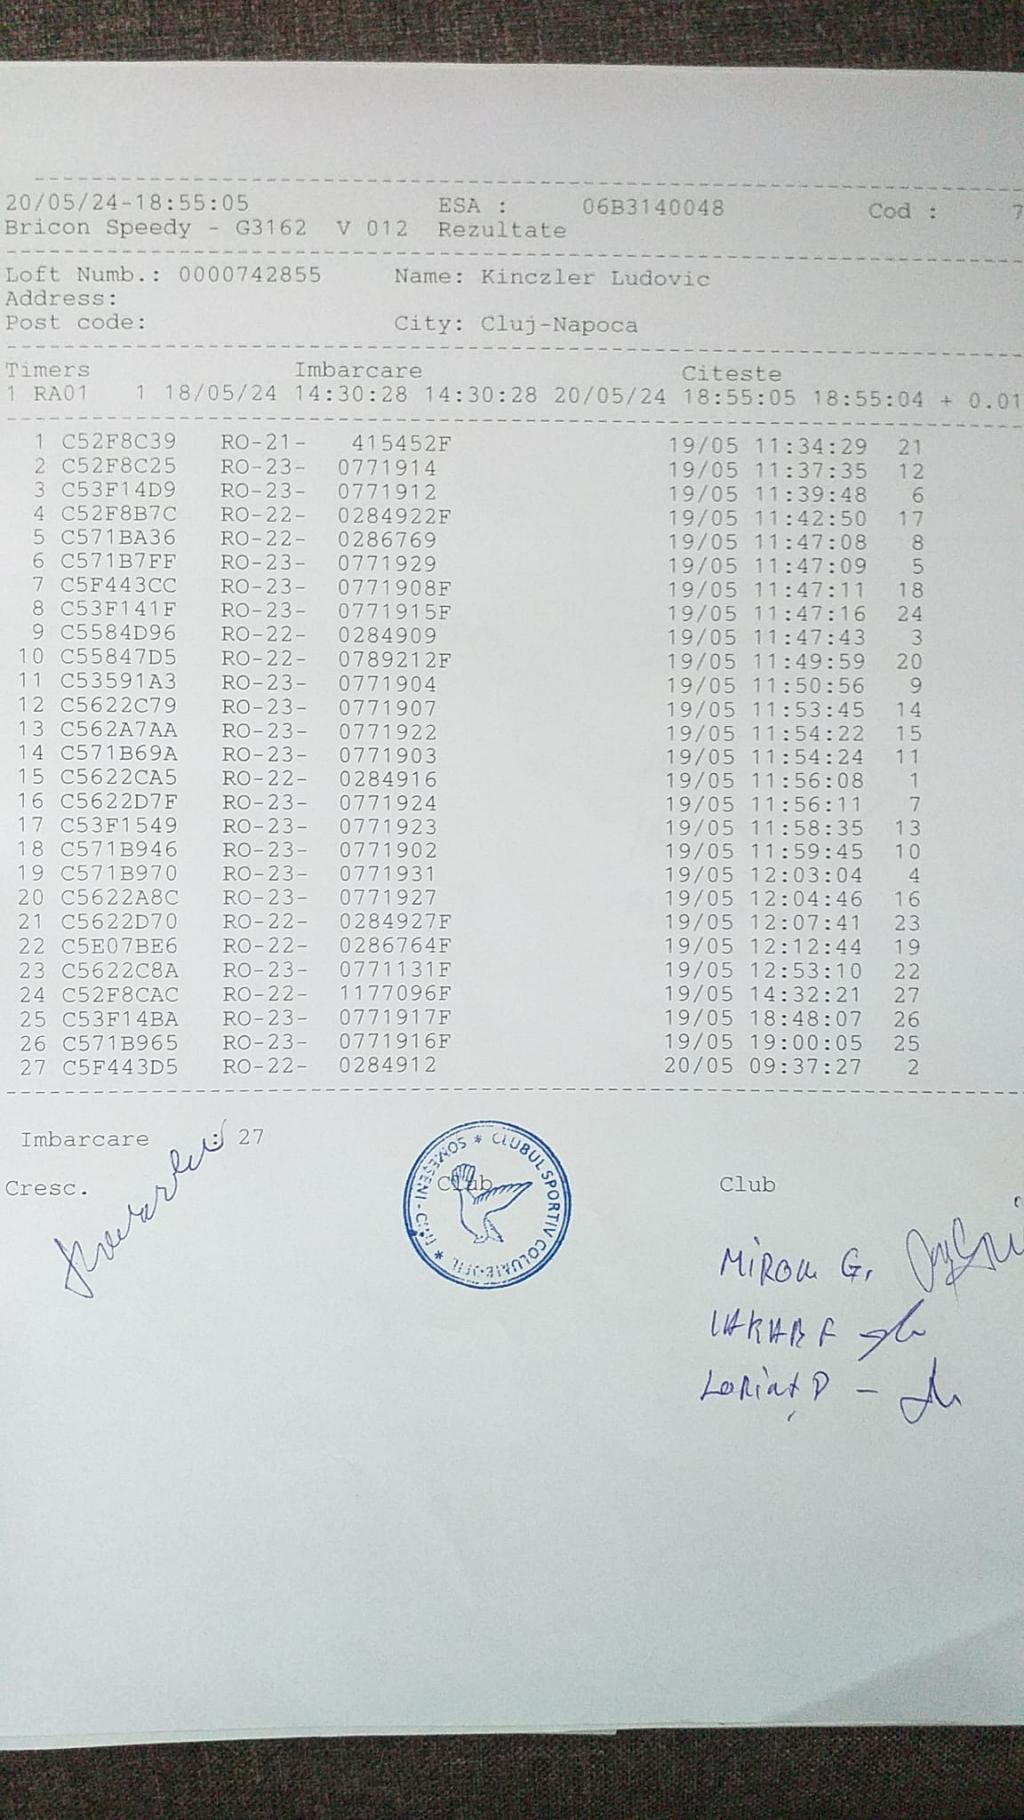 20/05/24-18:55:05 ESA : 06B3140048 Cod : 7
Bricon Speedy - G3162 V 012 Rezultate
Loft Numb.: 0000742855 Name: Kinczler Ludovic
Address:
Post code: City: Cluj-Napoca
Timers Imbarcare Citeste
1 RA01 1 18/05/24 14:30:28 14:30:28 20/05/24 18:55:05 18:55:04 + 0.01
1 C52F8C39 RO-21- 415452F 19/05 11:34:29 21
2 C52F8C25 RO-23- 0771914 19/05 11:37:35 12
3 C53F14D9 RO-23- 0771912 19/05 11:39:48 6
4 C52F8B7C RO-22- 0284922F 19/05 11:42:50 17
5 C571BA36 RO-22- 0286769 19/05 11:47:08 8
6 C571B7FF RO-23- 0771929 19/05 11:47:09 5
7 C5F443CC RO-23- 0771908F 19/05 11:47:11 18
8 C53F141F RO-23- 0771915F 19/05 11:47:16 24
9 C5584D96 RO-22- 0284909 19/05 11:47:43 3
10 C55847D5 RO-22- 0789212F 19/05 11:49:59 20
11 C53591A3 RO-23- 0771904 19/05 11:50:56 9
12 C5622C79 RO-23- 0771907 19/05 11:53:45 14
13 C562A7AA RO-23- 0771922 19/05 11:54:22 15
14 C571B69A RO-23- 0771903 19/05 11:54:24 11
15 C5622CA5 RO-22- 0284916 19/05 11:56:08 1
16 C5622D7F RO-23- 0771924 19/05 11:56:11 7
17 C53F1549 RO-23- 0771923 19/05 11:58:35 13
18 C571B946 RO-23- 0771902 19/05 11:59:45 10
19 C571B970 RO-23- 0771931 19/05 12:03:04 4
20 C5622A8C RO-23- 0771927 19/05 12:04:46 16
21 C5622D70 RO-22- 0284927F 19/05 12:07:41 23
22 C5E07BE6 RO-22- 0286764F 19/05 12:12:44 19
23 C5622C8A RO-23- 0771131F 19/05 12:53:10 22
24 C52F8CAC RO-22- 1177096F 19/05 14:32:21 27
25 C53F14BA RO-23- 0771917F 19/05 18:48:07 26
26 C571B965 RO-23- 0771916F 19/05 19:00:05 25
27 C5F443D5 RO-22- 0284912 20/05 09:37:27 2
Imbarcare : 27
Cresc. Club Club
CLUBUL SPORTIV COLUMBOFIL
SOMEȘENI
MIRON G.
LAKAB F